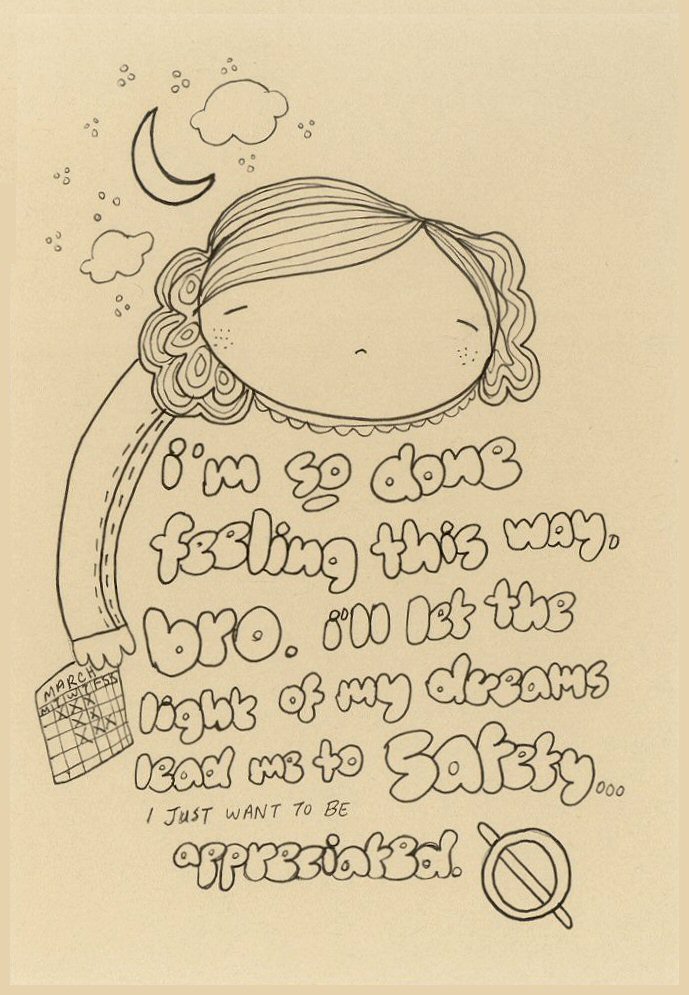 i'm so done
feeling this way,
bro. i'll let the
light of my dreams
lead me to safety...
I JUST WANT TO BE
appreciated.
MARCH
M T W T F S S
X X X
X X
X X X